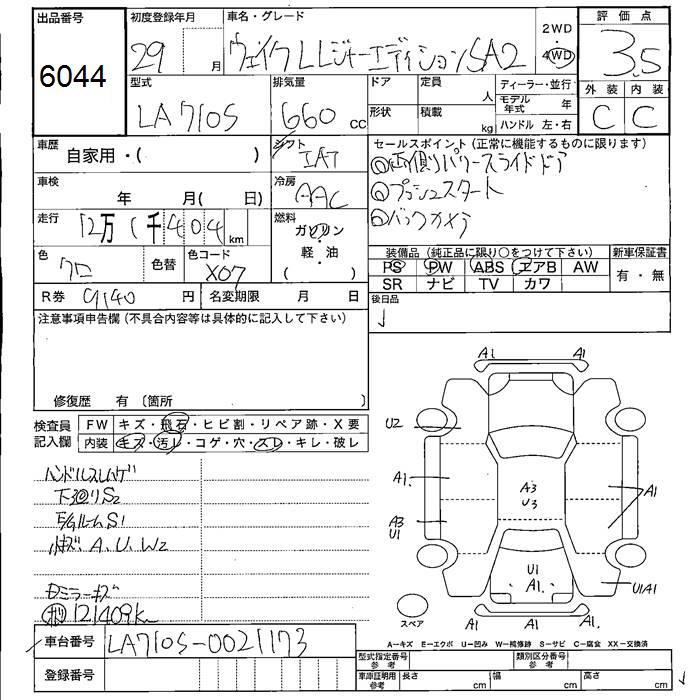 出品番号
6044
初度登録年月
29 月
車名・グレード
ウェイク LレジャーエディションSA2
2WD
・
4WD
評価点
3.5
外装 内装
C C
型式
LA710S
排気量
660 cc
ドア
形状
定員 人
積載 kg
ディーラー・並行
モデル年式 年
ハンドル 左・右
車歴
自家用・( )
シフト
IAT
車検
年 月( 日)
冷房
AAC
走行
12万1千404 km
燃料
ガソリン
軽・油
( )
色
クロ
色替
色コード
X07
R券 9140 円
名変期限 月 日
セールスポイント(正常に機能するものに限ります)
両側パワースライドドア
プッシュスタート
バックカメラ
装備品(純正品に限り○をつけて下さい)
PS PW ABS エアB AW
SR ナビ TV カワ
新車保証書
有・無
後日品
注意事項申告欄(不具合内容等は具体的に記入して下さい)
修復歴 有〔箇所 〕
検査員
記入欄
FW キズ・飛石・ヒビ割・リペア跡・X要
内装 キズ・汚レ・コゲ・穴・スレ・キレ・破レ
ハンドルスレハゲ
下廻りS2
E/GルームS1
小キズ A.U.W2
ミラーキズ
121409km
車台番号 LA710S-0021173
登録番号
A1 A1
U2
A1.
A3
U1
A3
U3
A1
U1
A1.
U1A1
A1 A1 A1.
スペア
A－キズ E－エクボ U－凹み W－補修跡 S－サビ C－腐食 XX－交換済
型式指定番号
参考
類別区分番号
参考
車庫証明用
参考
長さ cm
幅 cm
高さ cm